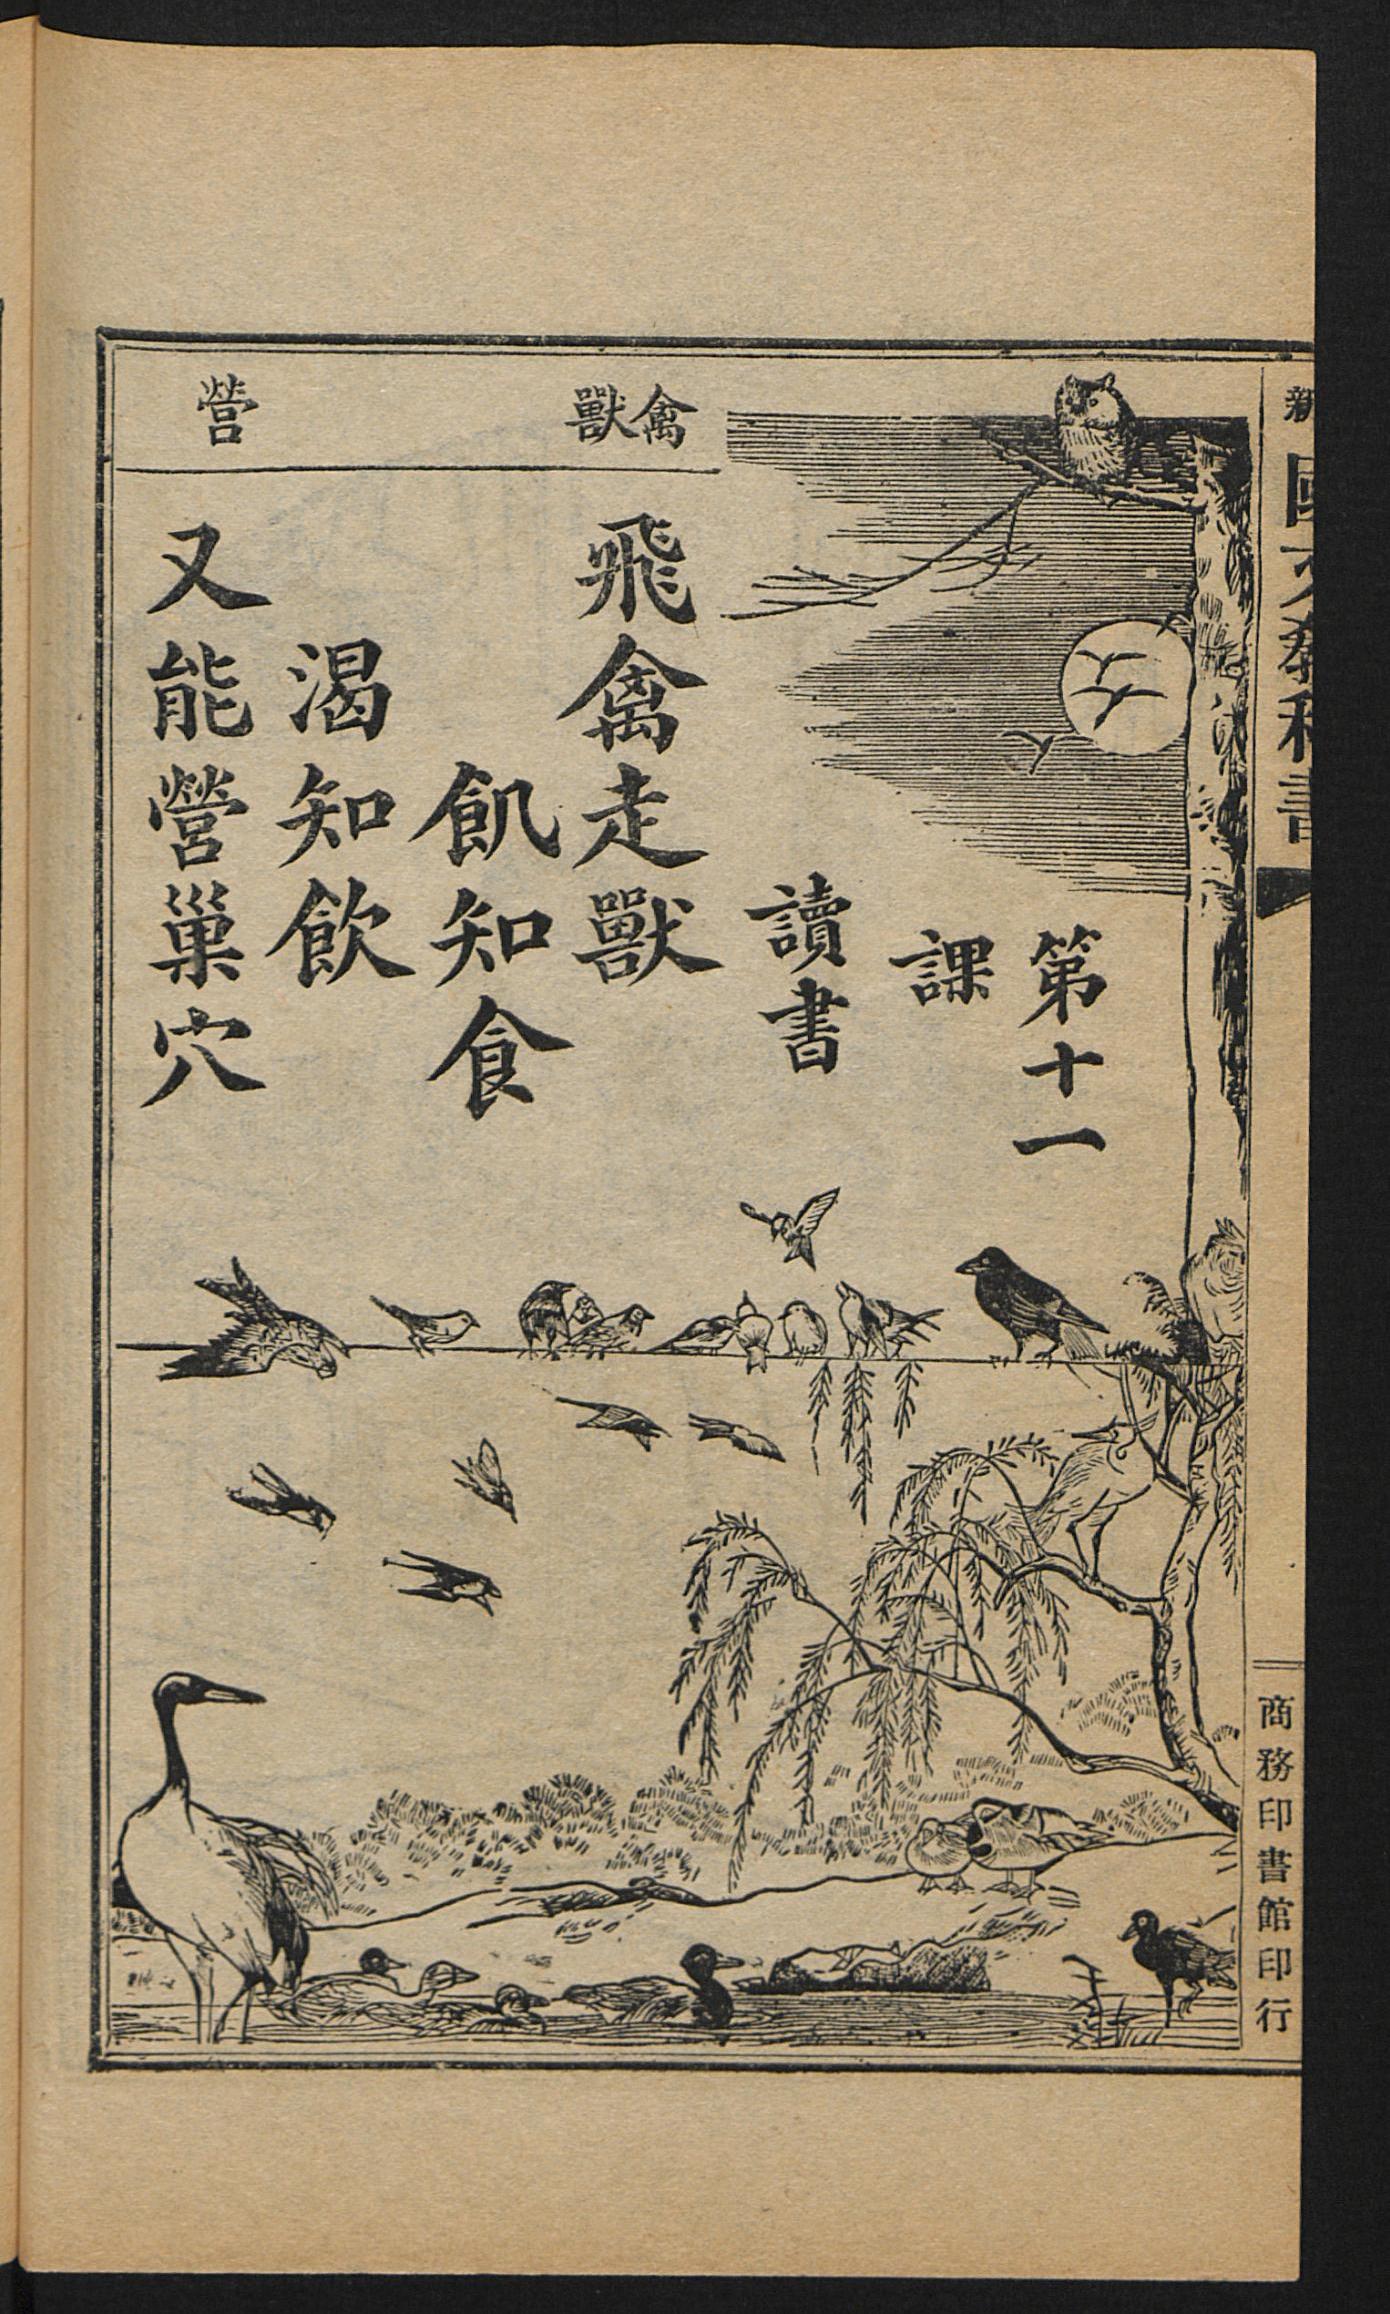 新國文教科書
商務印書館印行
第十一
課
讀書
禽
獸
營
飛禽走獸
飢知食
渴知飲
又能營巢穴